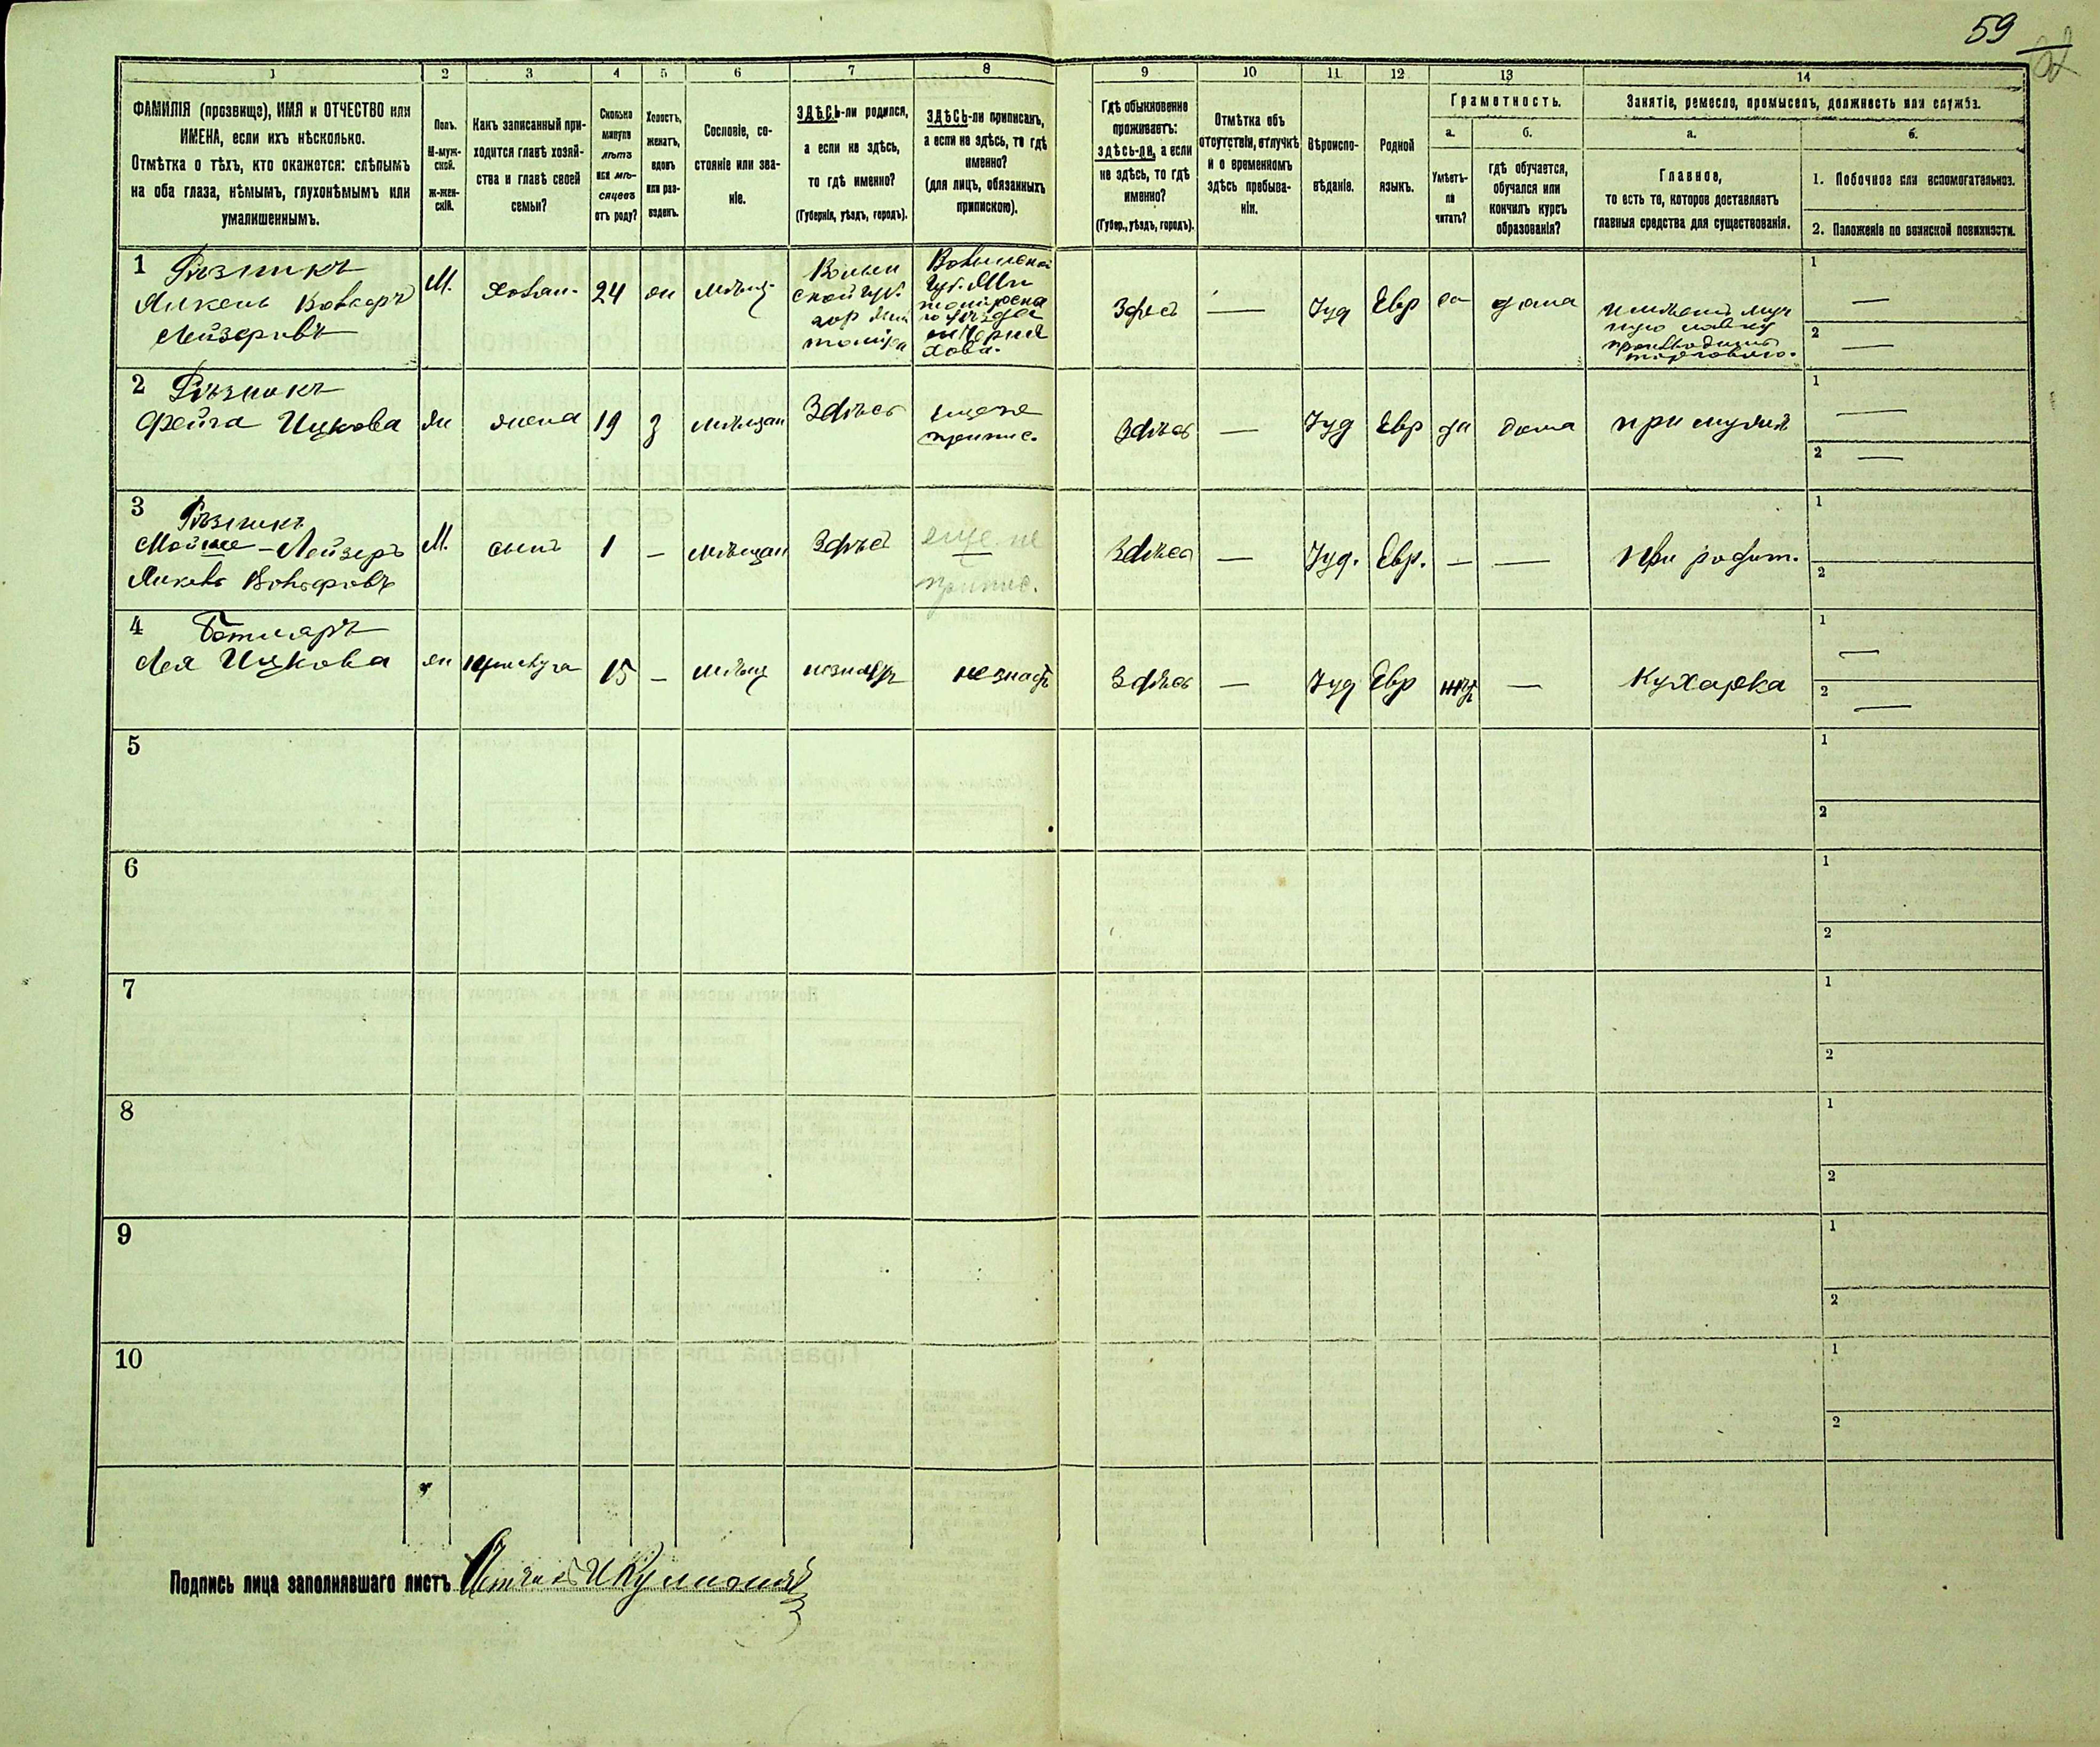 59
1
2
3
4
5
6
7
8
9
10
11
12
13
14
ФАМИЛІЯ (прозвище), ИМЯ и ОТЧЕСТВО или
ИМЕНА, если ихъ нѣсколько.
Отмѣтка о тѣхъ, кто окажется: слѣпымъ
на оба глаза, нѣмымъ, глухонѣмымъ или
умалишеннымъ.
Полъ.
М-муж-
ской.
ж-жен-
скій.
Какъ записанный при-
ходится главѣ хозяй-
ства и главѣ своей
семьи?
Сколько
минуло
лѣтъ
или мѣ-
сяцевъ
отъ роду?
Холостъ,
женатъ,
вдовъ
или раз-
веденъ.
Сословіе, со-
стояніе или зва-
ніе.
ЗДѢСЬ-ли родился,
а если не здѣсь,
то гдѣ именно?
(Губернія, уѣздъ, городъ).
ЗДѢСЬ-ли приписанъ,
а если не здѣсь, то гдѣ
именно?
(для лицъ, обязанныхъ
припискою).
Гдѣ обыкновенно
проживаетъ:
здѣсь-ли, а если
не здѣсь, то гдѣ
именно?
(Губер., уѣздъ, городъ).
Отмѣтка объ
отсутствіи, отлучкѣ
и о временномъ
здѣсь пребыва-
ніи.
Вѣроиспо-
вѣданіе.
Родной
языкъ.
Грамотность.
а.
Умѣетъ-
ли
читать?
б.
гдѣ обучается,
обучался или
кончилъ курсъ
образованія?
Занятіе, ремесло, промыселъ, должность или служба.
а.
Главное,
то есть то, которое доставляетъ
главныя средства для существованія.
б.
1. Побочное или вспомогательное.
2. Положеніе по воинской повинности.
1 Рѣзникъ
Янкель Вольфъ
Лейзеровъ
М.
хозяин.
24
жен
мѣщ.
Волын
ской губ.
гор Жи
томіра
Волынской
губ. Жи
томірска
го уѣзда
м Черня
хова.
Здѣсь
—
Іуд
Евр
да
дома
имѣетъ муч
ную лавку
производитъ
торговлю.
1 —
2 —
2 Рѣзникъ
Фейга Ицкова
ж
жена
19
з
мѣщан
Здѣсь
припис.
Здѣсь
—
Іуд
Евр
да
дома
при мужѣ
1 —
2 —
3 Рѣзникъ
Мойше-Лейзеръ
Янкель Вольфовъ
М.
сынъ
1
—
мѣщан
Здѣсь
еще не
припис.
Здѣсь
—
Іуд.
Евр.
—
—
при родит.
1
2
4
Лея Ицкова
ж
прислуга
15
—
мѣщ
незнаетъ
незнаетъ
Здѣсь
—
Іуд
Евр
нѣтъ
—
Кухарка
1 —
2 —
5
1
2
6
1
2
7
1
2
8
1
2
9
1
2
10
1
2
Подпись лица заполнявшаго листъ